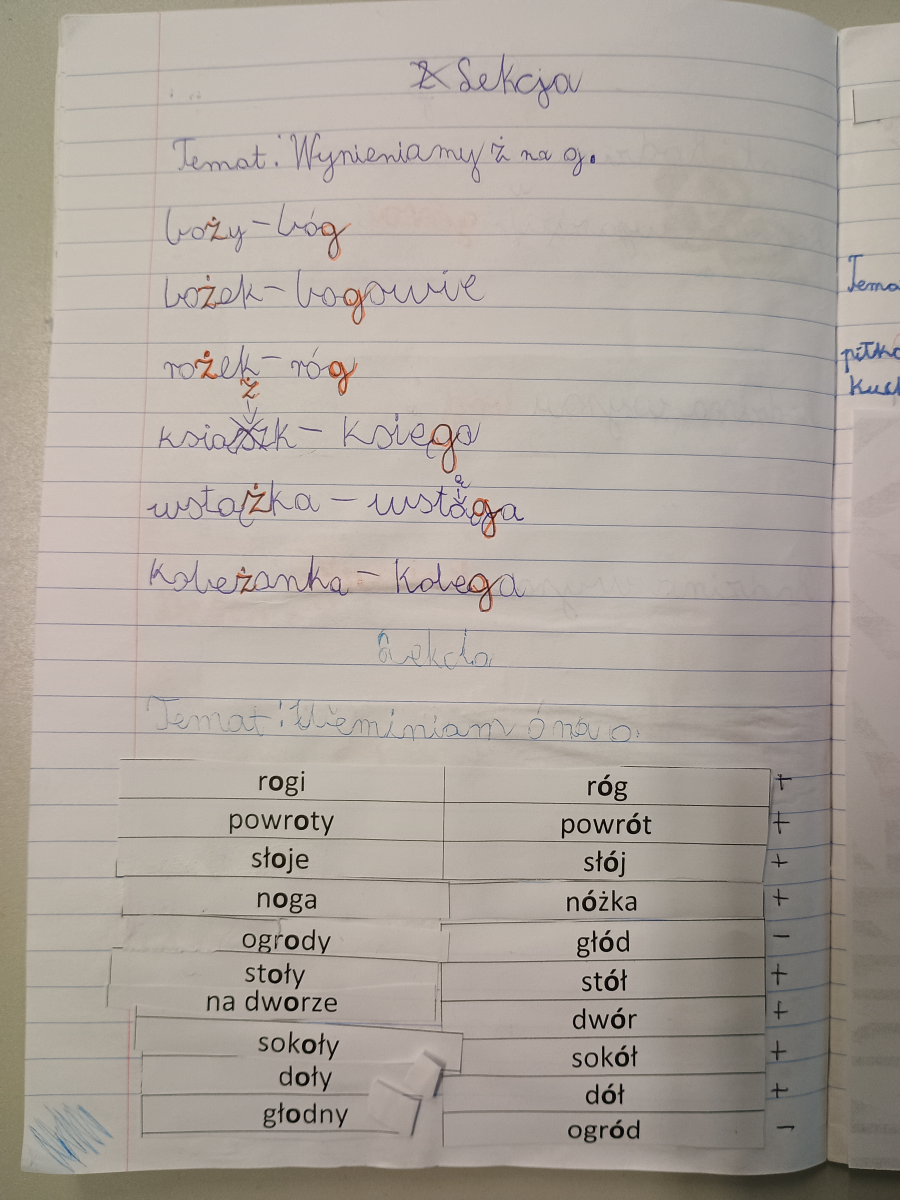 Lekcja
Temat: Wynieniamy ż na g.
boży – bóg
bożek – bogowie
rożek – róg
ż
ksiazk – Księga
ą
wstążka – wstąga
Koleżanka – Kolega
Lekcja
Temat: Wieminiam ó na o.
rogi róg +
powroty powrót +
słoje słój +
noga nóżka +
ogrody głód –
stoły stół +
na dworze dwór +
sokoły sokół +
doły dół +
głodny ogród –
Tema
piłko
Kusk